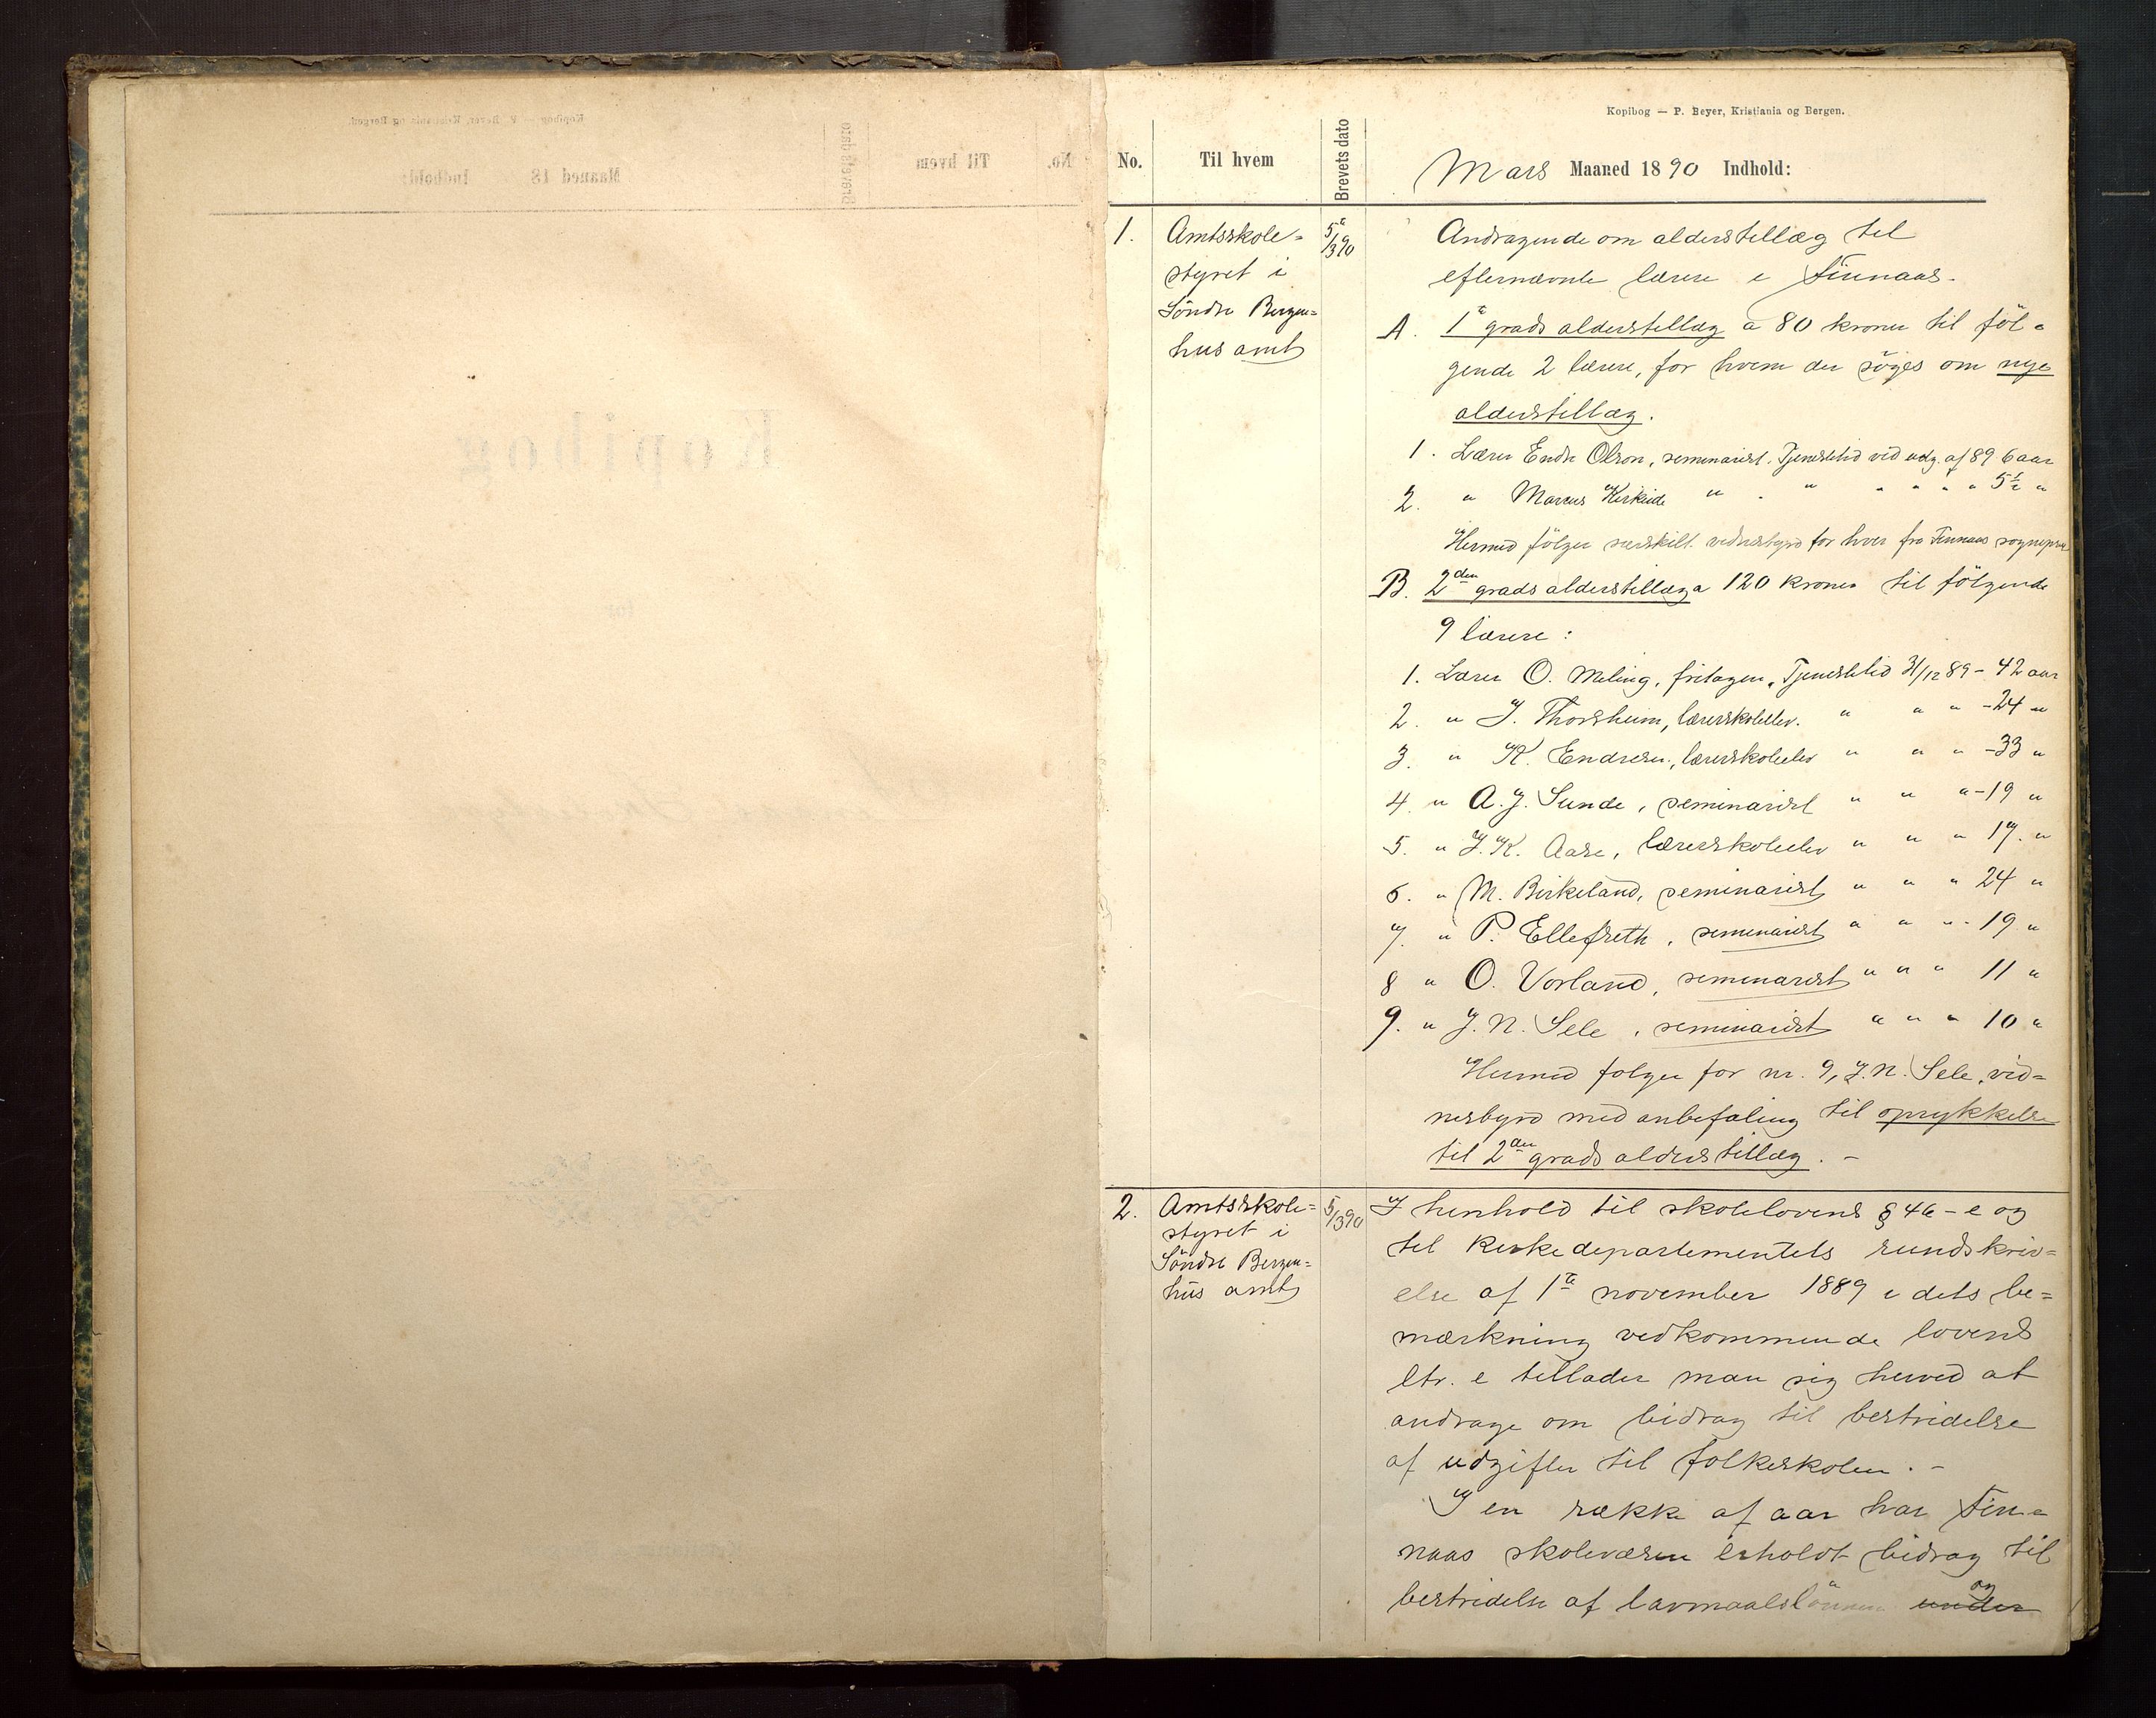 Kopibog — P. Beyer, Kristiania og Bergen.
No. Til hvem Brevets dato Mars Maaned 1890 Indhold:
1. Amtsskole-
styret i
Söndre Bergen-
hus amt
5/3 90
Andragende om alderstillæg til
efternævnte lærere i Finnaas.
A. 1ste grads alderstillæg a 80 kroner til föl-
gende 2 lærere, for hvem der söges om nye
alderstillæg.
1. Lærer Endre Olson, seminarist. Tjenestetid ved udg. af 89 6 aar
2. " Marcus " . " " " " " 5½ "
Hermed fölger særskilt vidnesbyrd for hver fra Finnaas sognepræst
B. 2den grads alderstillæg a 120 kroner til fölgende
9 lærere:
1. Lærer O. Meling, fritagen, Tjenestetid 31/12 89 - 42 aar
2. " J. Thorsheim, lærerskoleelev. " " " - 24 "
3. " K. Endresen, lærerskoleelev " " " - 33 "
4. " A. J. Sunde, seminarist " " " - 19 "
5. " J. K. Aase, lærerskoleelev " " " 17. "
6. " M. Birkeland, seminarist " " " 24 "
7. " P. Ellefseth, seminarist " " " - 19 "
8 " O. Vorland, seminarist " " " 11 "
9. " J. N. Sele, seminarist " " " 10 "
Hermed folger for nr. 9, J. N. Sele, vid-
nesbyrd med anbefaling til oprykkelse
til 2den grads alderstillæg. -
2. Amtsskole-
styret i
Söndre Bergen-
hus amt
5/3 90
I henhold til skolelovens § 46 - e og
til Kirkedepartementets rundskriv-
else af 1ste november 1889 i dets be-
mærkning vedkommende lovens
ltr. e tillader man sig herved at
andrage om bidrag til bestridelse
af udgifter til folkeskolen. -
I en række af aar har Fin-
naas skolevæsen erholdt bidrag til
bestridelse af lavmaalslönnen under og